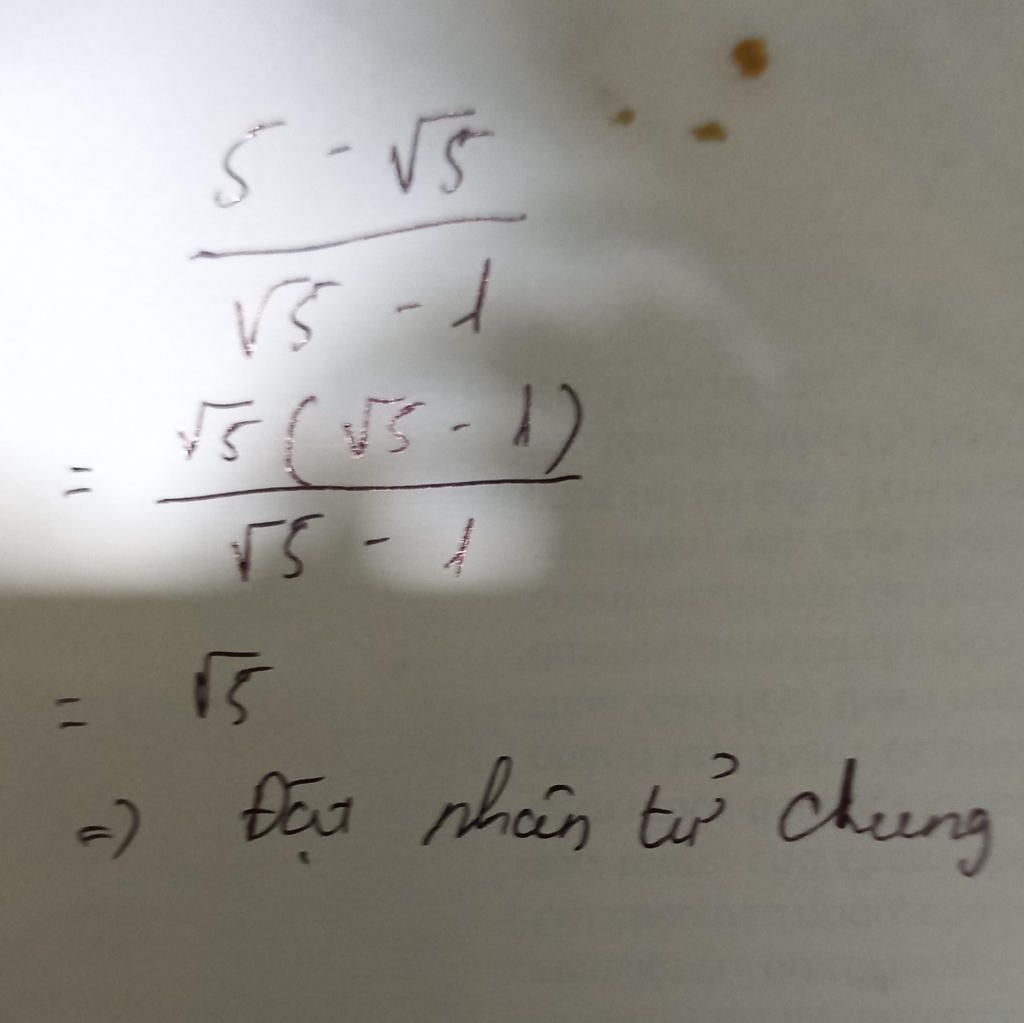 5 - √5
√5 - 1
= √5 ( √5 - 1 )
√5 - 1
= √5
=) Đặt nhân tử chung